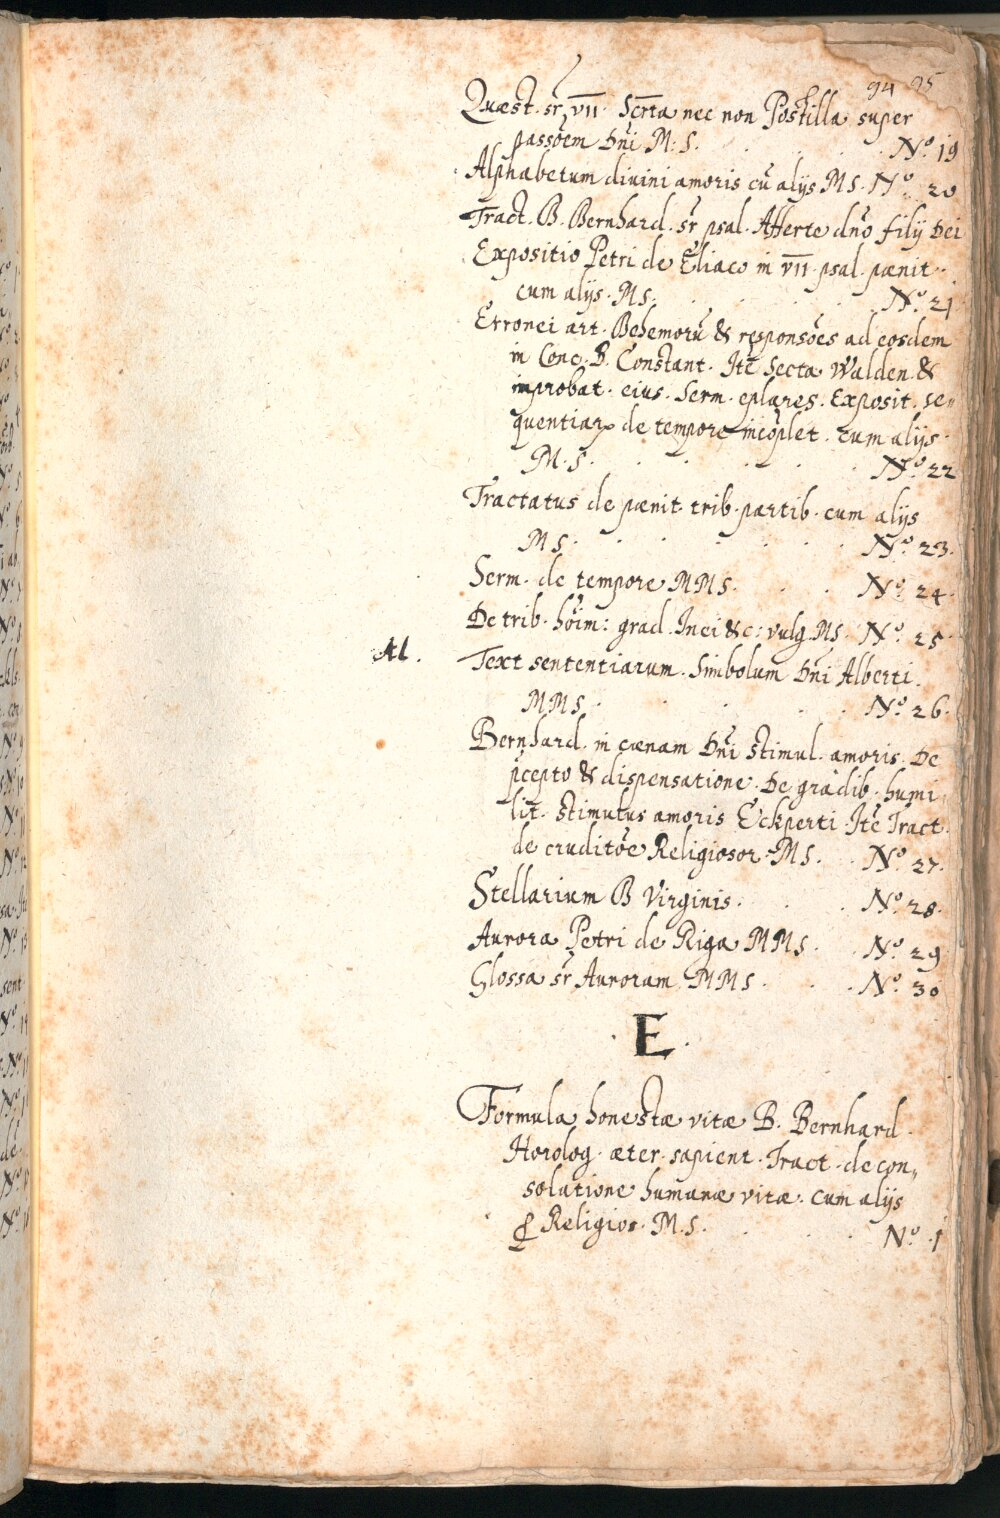 94 95
Quæst. sr̃ v̅i̅i̅. Scr̃ta nec non Postilla super
passõem Dñi M. S. . . . Nº 19
Alphabetum diuini amoris cũ alijs M S. Nº 20
Tract. B. Bernhard. sr̃ psal. Afferte dnõ filij Dei
Expositio Petri de Eliaco in v̅i̅i̅. psal. pænit.
cum alijs. M S. . . . Nº 21
Erronei art. Behemorũ & responsões ad eosdem
in Conc. B. Constant. Itẽ Secta Walden. &
improbat. eius. Serm. eplares. Exposit. se„
quentiarꝝ de tempore incõplet. cum alijs.
M. S. . . . Nº 22
Tractatus de pænit. trib. partib. cum alijs
M S. . . . Nº 23.
Serm. de tempore M M S. . . Nº 24.
De trib. hõim: grad. Inci &c: vulg. M S. Nº 25
Al. Text sententiarum. Simbolum Dñi Alberti.
M M S. . . . Nº 26.
Bernhard. in cænam Dñi stimul. amoris. De
p̃cepto & dispensatione. De gradib. humi
lit. stimulus amoris Eckperti. Itẽ Tract.
de eruditõe Religiosor. M S. . Nº 27.
Stellarium B Virginis. . . Nº 28.
Aurora Petri de Riga M M S. . Nº 29
Glossa sr̃ Auroram M M S. . . Nº 30
. E .
Formula honestæ vitæ B. Bernhard.
Horolog. æter. sapient. Tract. de con„
solatione humanæ vitæ. cum alijs
Religios. M. S. . . . Nº 1